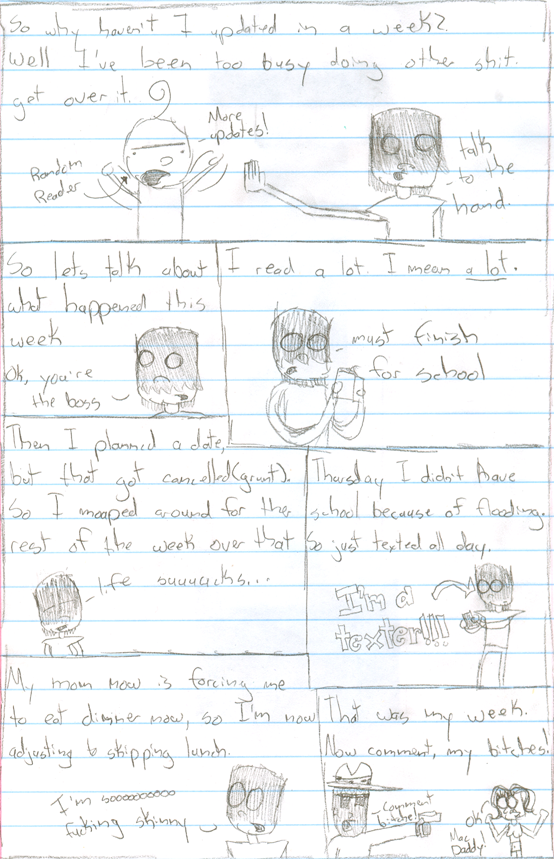 So why haven't I updated in a week?
Well I've been too busy doing other shit.
get over it.
More
updates!
Random
Reader
talk
to the
hand.
So lets talk about
what happened this
week
Ok, you're
the boss
I read a lot. I mean a lot.
must finish
for school
Then I planned a date,
but that got cancelled(grunt).
So I moaped around for the
rest of the week over that
life suuuucks...
Thursday I didn't have
school because of flooding.
So just texted all day.
I'm a
texter!!!
My mom now is forcing me
to eat dinner now, so I'm now
adjusting to skipping lunch.
I'm soooooooooo
fucking skinny
That was my week.
Now comment, my bitches!
Comment
bitche!
ok
Mac
Daddy!